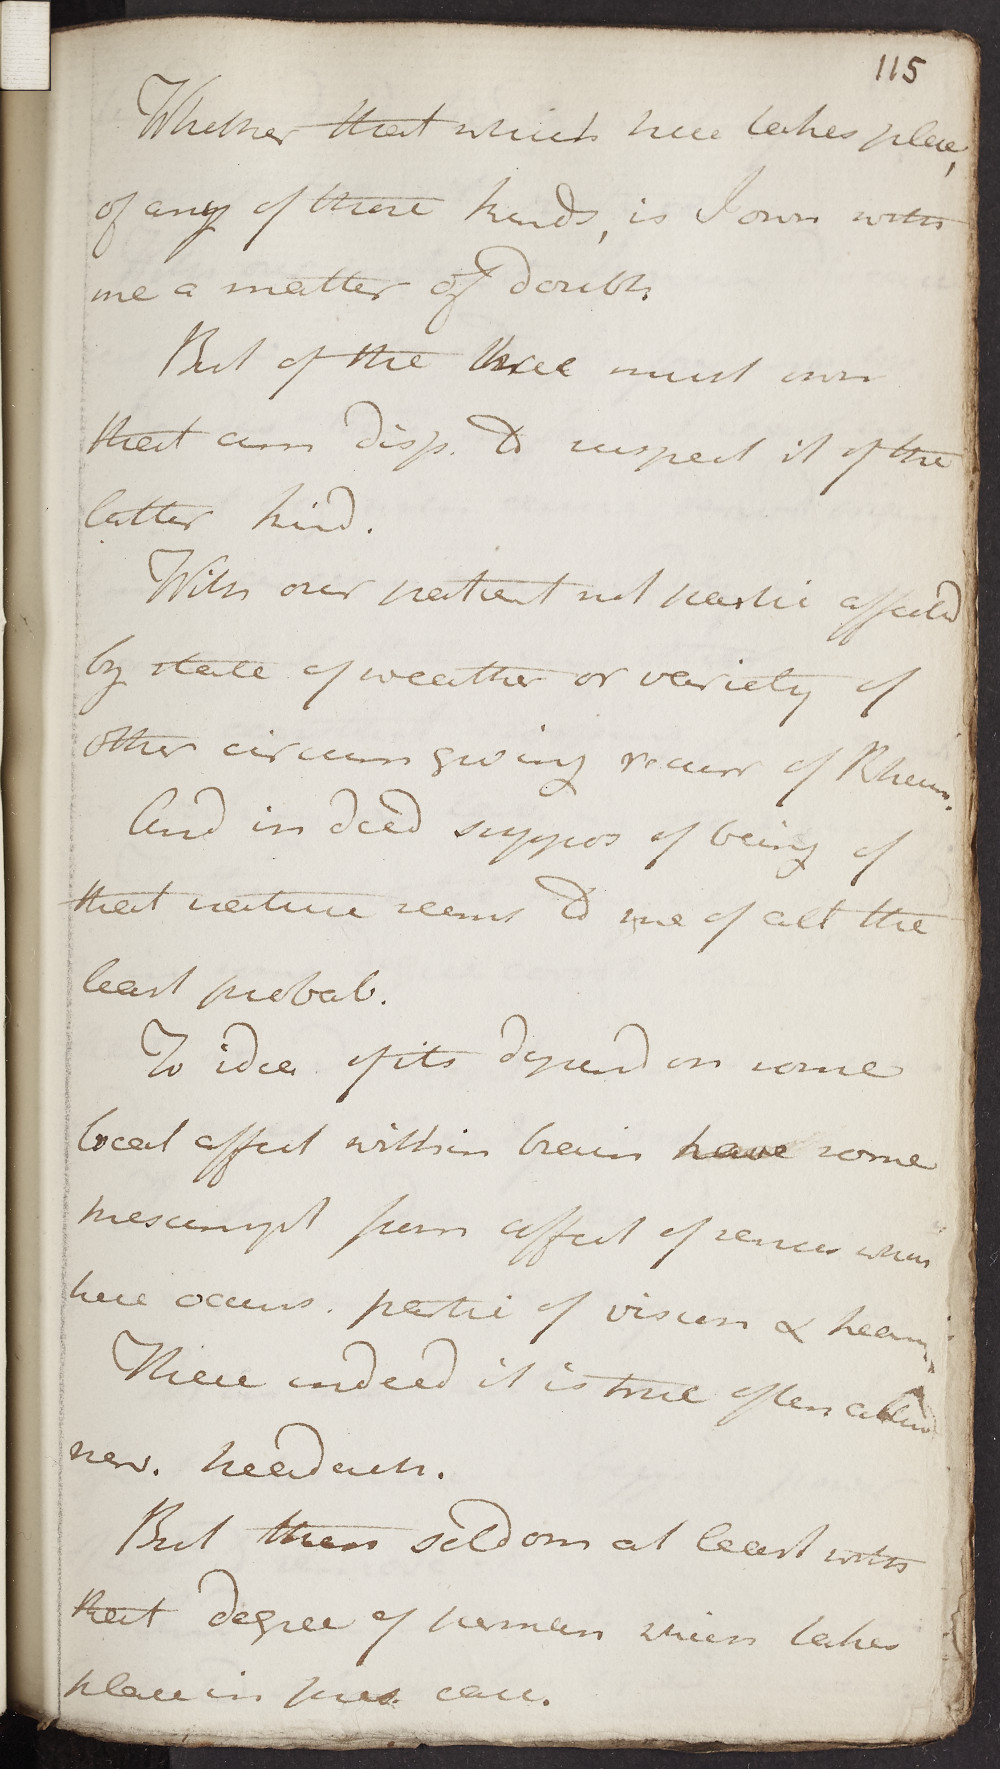 115
Whether that which here takes place,
of any of those kinds, is I own with
me a matter of doubt.
But of the three must own
that am disp. to suspect it of the
latter kind.
With our patient not partic affected
by state of weather or variety of
other circum giving recurr of Rheum.
And indeed suppos of being of
that nature seems to me of all the
least probab.
To idea of its depend on some
local affect within brain have some
presumpt from affect of senses which
here occurs. partic of vision & hearing.
These indeed it is true often attend
nerv. headach.
But then seldom at least with
that degree of perman which takes
place in pres case.